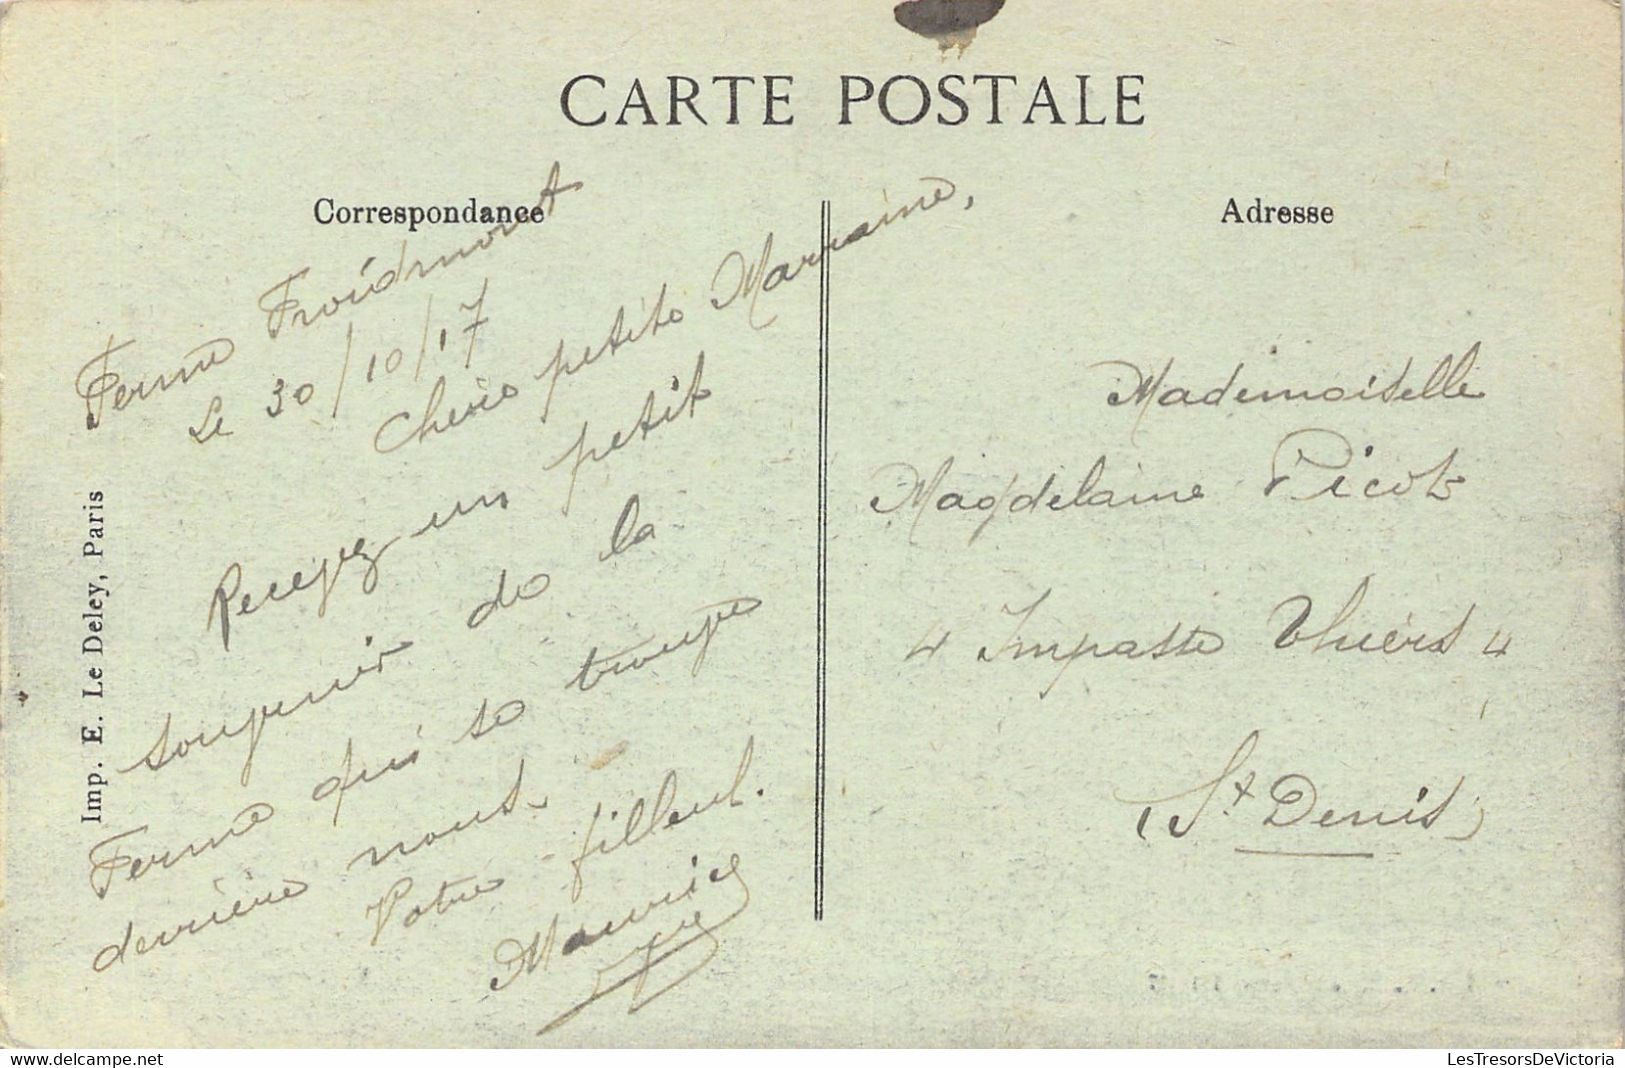 CARTE POSTALE
Correspondance
Ferme Froidmont
Le 30/10/17
Chère petite Marraine,
Recevez un petit
souvenir de la
Ferme qui se trouve
derrière nous.
Votre filleul.
Maurice
Imp. E. Le Deley, Paris
Adresse
Mademoiselle
Magdelaine Picot
4 Impasse Thiers 4
(St Denis)
www.delcampe.net
LesTresorsDeVictoria